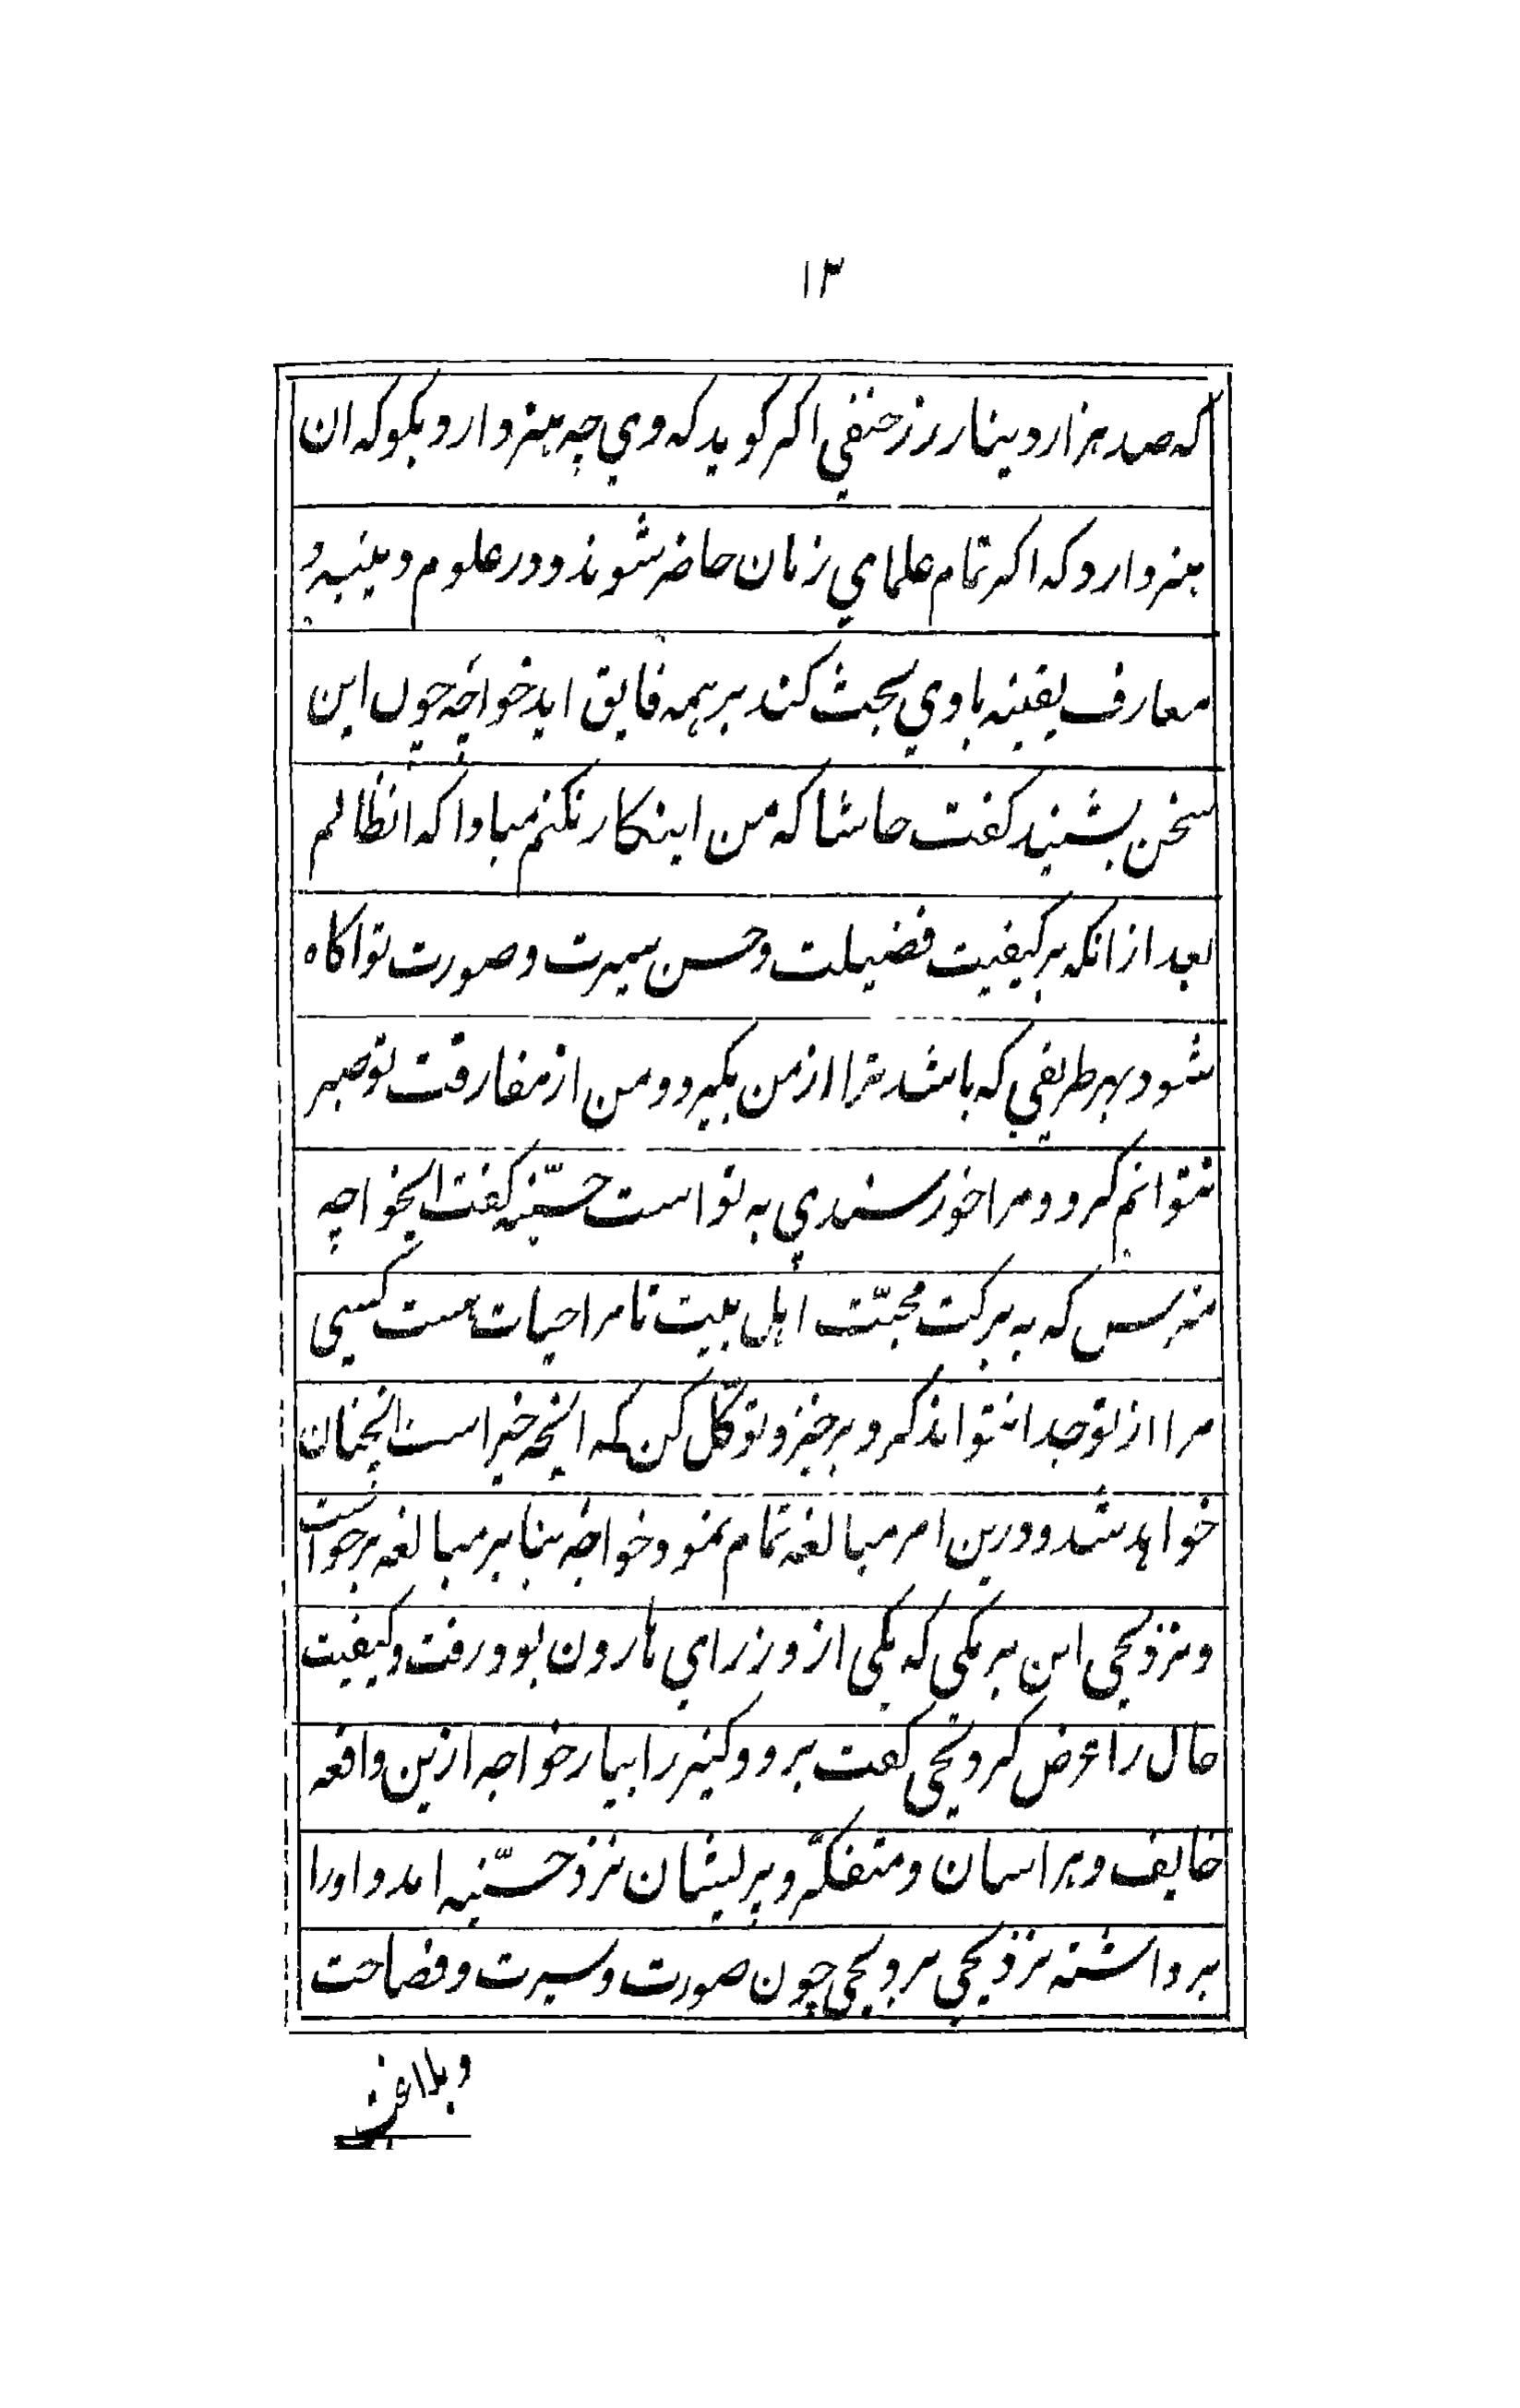 ١٣
که صد هزار دینار زر خنفی اکر کوید که وی چه هنر دارد بکو که ان
هنر دارد که اکر تمام علمای زمان حاضر شوند و در علوم دینیه و
معارف یقینه با وی بحث کند بر همه فایق اید خواجه چون این
سخن بشنید کفت حاشا که من اینکار نکنم مبادا که انظالم
بعد از انکه بر کیفیت فضیلت و حسن سیرت و صورت تو اکاه
شود بهر طریقی که باشد ترا از من بکیرد و من از مفارقت تو صبر
نتوانم کرد و مرا خورسندی به تو است حسّنیه کفت ایخواجه
مترس که به برکت محبّت اهل بیت تا مرا حیات هست کسی
مرا از تو جدا نتواند کرد برخیز و توکّل کن که انچه خیر است انچنان
خواهد شد و درین امر مبالغه تمام نمود خواجه بنا بر مبالغه برخواست
و نزد یحی ابن برمکی که یکی از وزرای هارون بود رفت و کیفیت
حال را عرض کرد یحی کفت برو و کنیز را بیار خواجه ازین واقعه
خایف و هراسان و متفکّر و پریشان نزد حسّنیه امد و اورا
برداشته نزد یحی برد یحی چون صورت و سیرت و فصاحت
و بلاغت